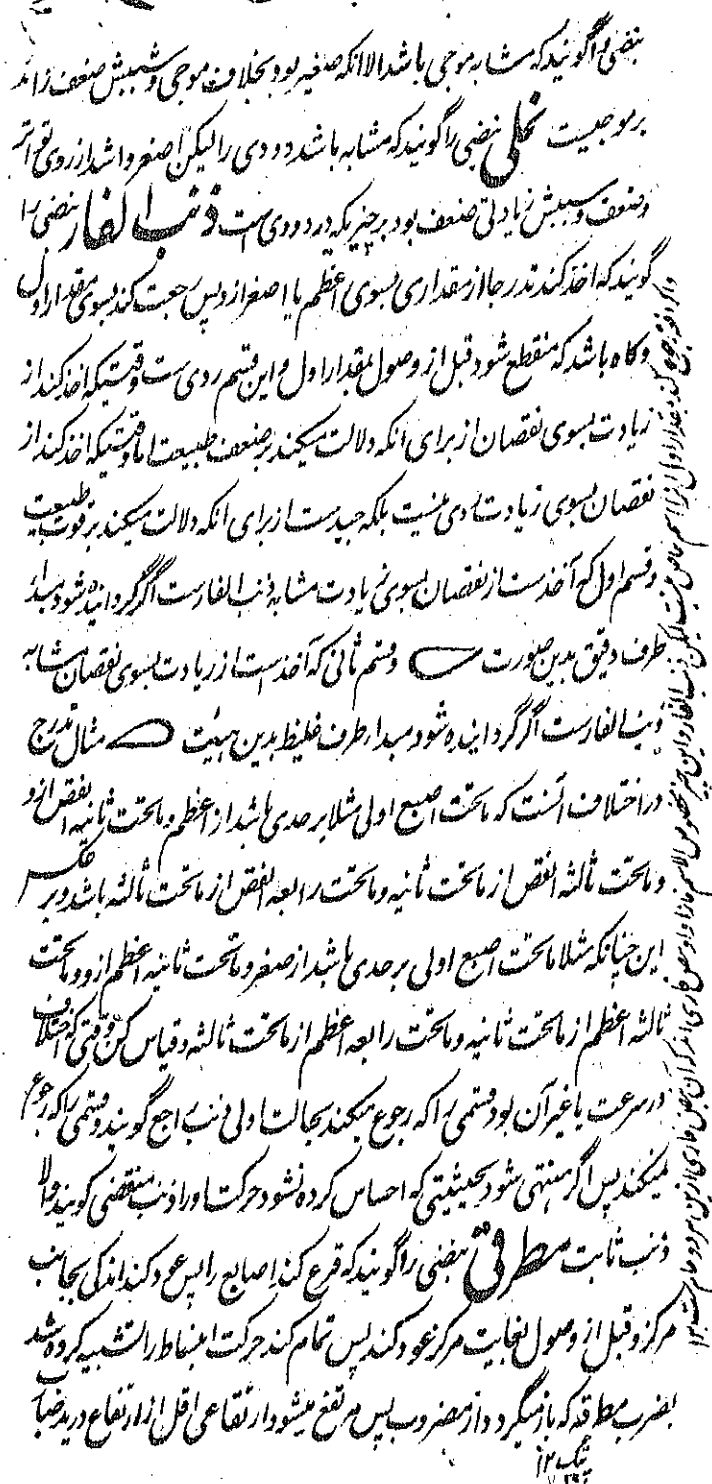 نبضی را گویند که مشابه موجی باشد الا انکه صغیر بود بخلاف موجی و سببش ضعف زائد
بر موجیست نملی نبضی را گویند که مشابه باشد دودی را لیکن اصغر و اشد از روی تواتر
و ضعف و سببش زیادتی ضعف بود بر چیزیکه در دودی است ذنب الفار نبضی را
گویند که اخذ کند تدرجا از مقداری بسوی اعظم یا اصغر ازو پس رجعت کند بسوی مقدار اول
و گاه باشد که منقطع شود قبل از وصول بمقدار اول و این قسم ردی ست وقتیکه اخذ کند از
زیادت بسوی نقصان از برای انکه دلالت میکند بر ضعف طبیعت اما وقتیکه اخذ کند از
نقصان بسوی زیادت ردی نیست بلکه جید ست از برای انکه دلالت میکند بر قوت طبیعت
و قسم اول که آخذ ست از نقصان بسوی زیادت مشابه ذنب الفار ست اگر گردانیده شود مبدأ
طرف دقیق بدین صورت و قسم ثانی که آخذ است از زیادت بسوی نقصان مشابه
ذنب الفار ست اگر گردانیده شود مبدأ طرف غلیظ بدین هیئت مثال تدرج
در اختلاف آنست که ماتحت اصبع اولی مثلا بر حدی باشد از اعظم و ماتحت ثانیه انقص ازو
و ماتحت ثالثه انقص از ماتحت ثانیه و ماتحت رابعه انقص از ماتحت ثالثه باشد و بر عکس
این چنانکه مثلا ماتحت اصبع اولی بر حدی باشد از صغر و ماتحت ثانیه اعظم ازو و ماتحت
ثالثه اعظم از ماتحت ثانیه و ماتحت رابعه اعظم از ماتحت ثالثه و قیاس کن وقتی که اختلاف
در سرعت یا غیر آن بود و قسمی را که رجوع میکند بحالت اولی ذنب راجع گویند و قسمی را که رجوع
نمیکند پس اگر منتهی شود بحیثیتی که احساس کرده نشود حرکت او را ذنب منقضی گویند والا
ذنب ثابت مطرقی نبضی را گویند که قرع کند اصابع را پس عود کند اندکی بجانب
مرکز و قبل از وصول بغایت مرکز عود کند پس تمام کند حرکت انبساط را تشبیه کرده شد
بضرب مطرقه که باز میگردد از مضروب پس مرتفع میشود ارتفاعی اقل از ارتفاع در ید ضباب